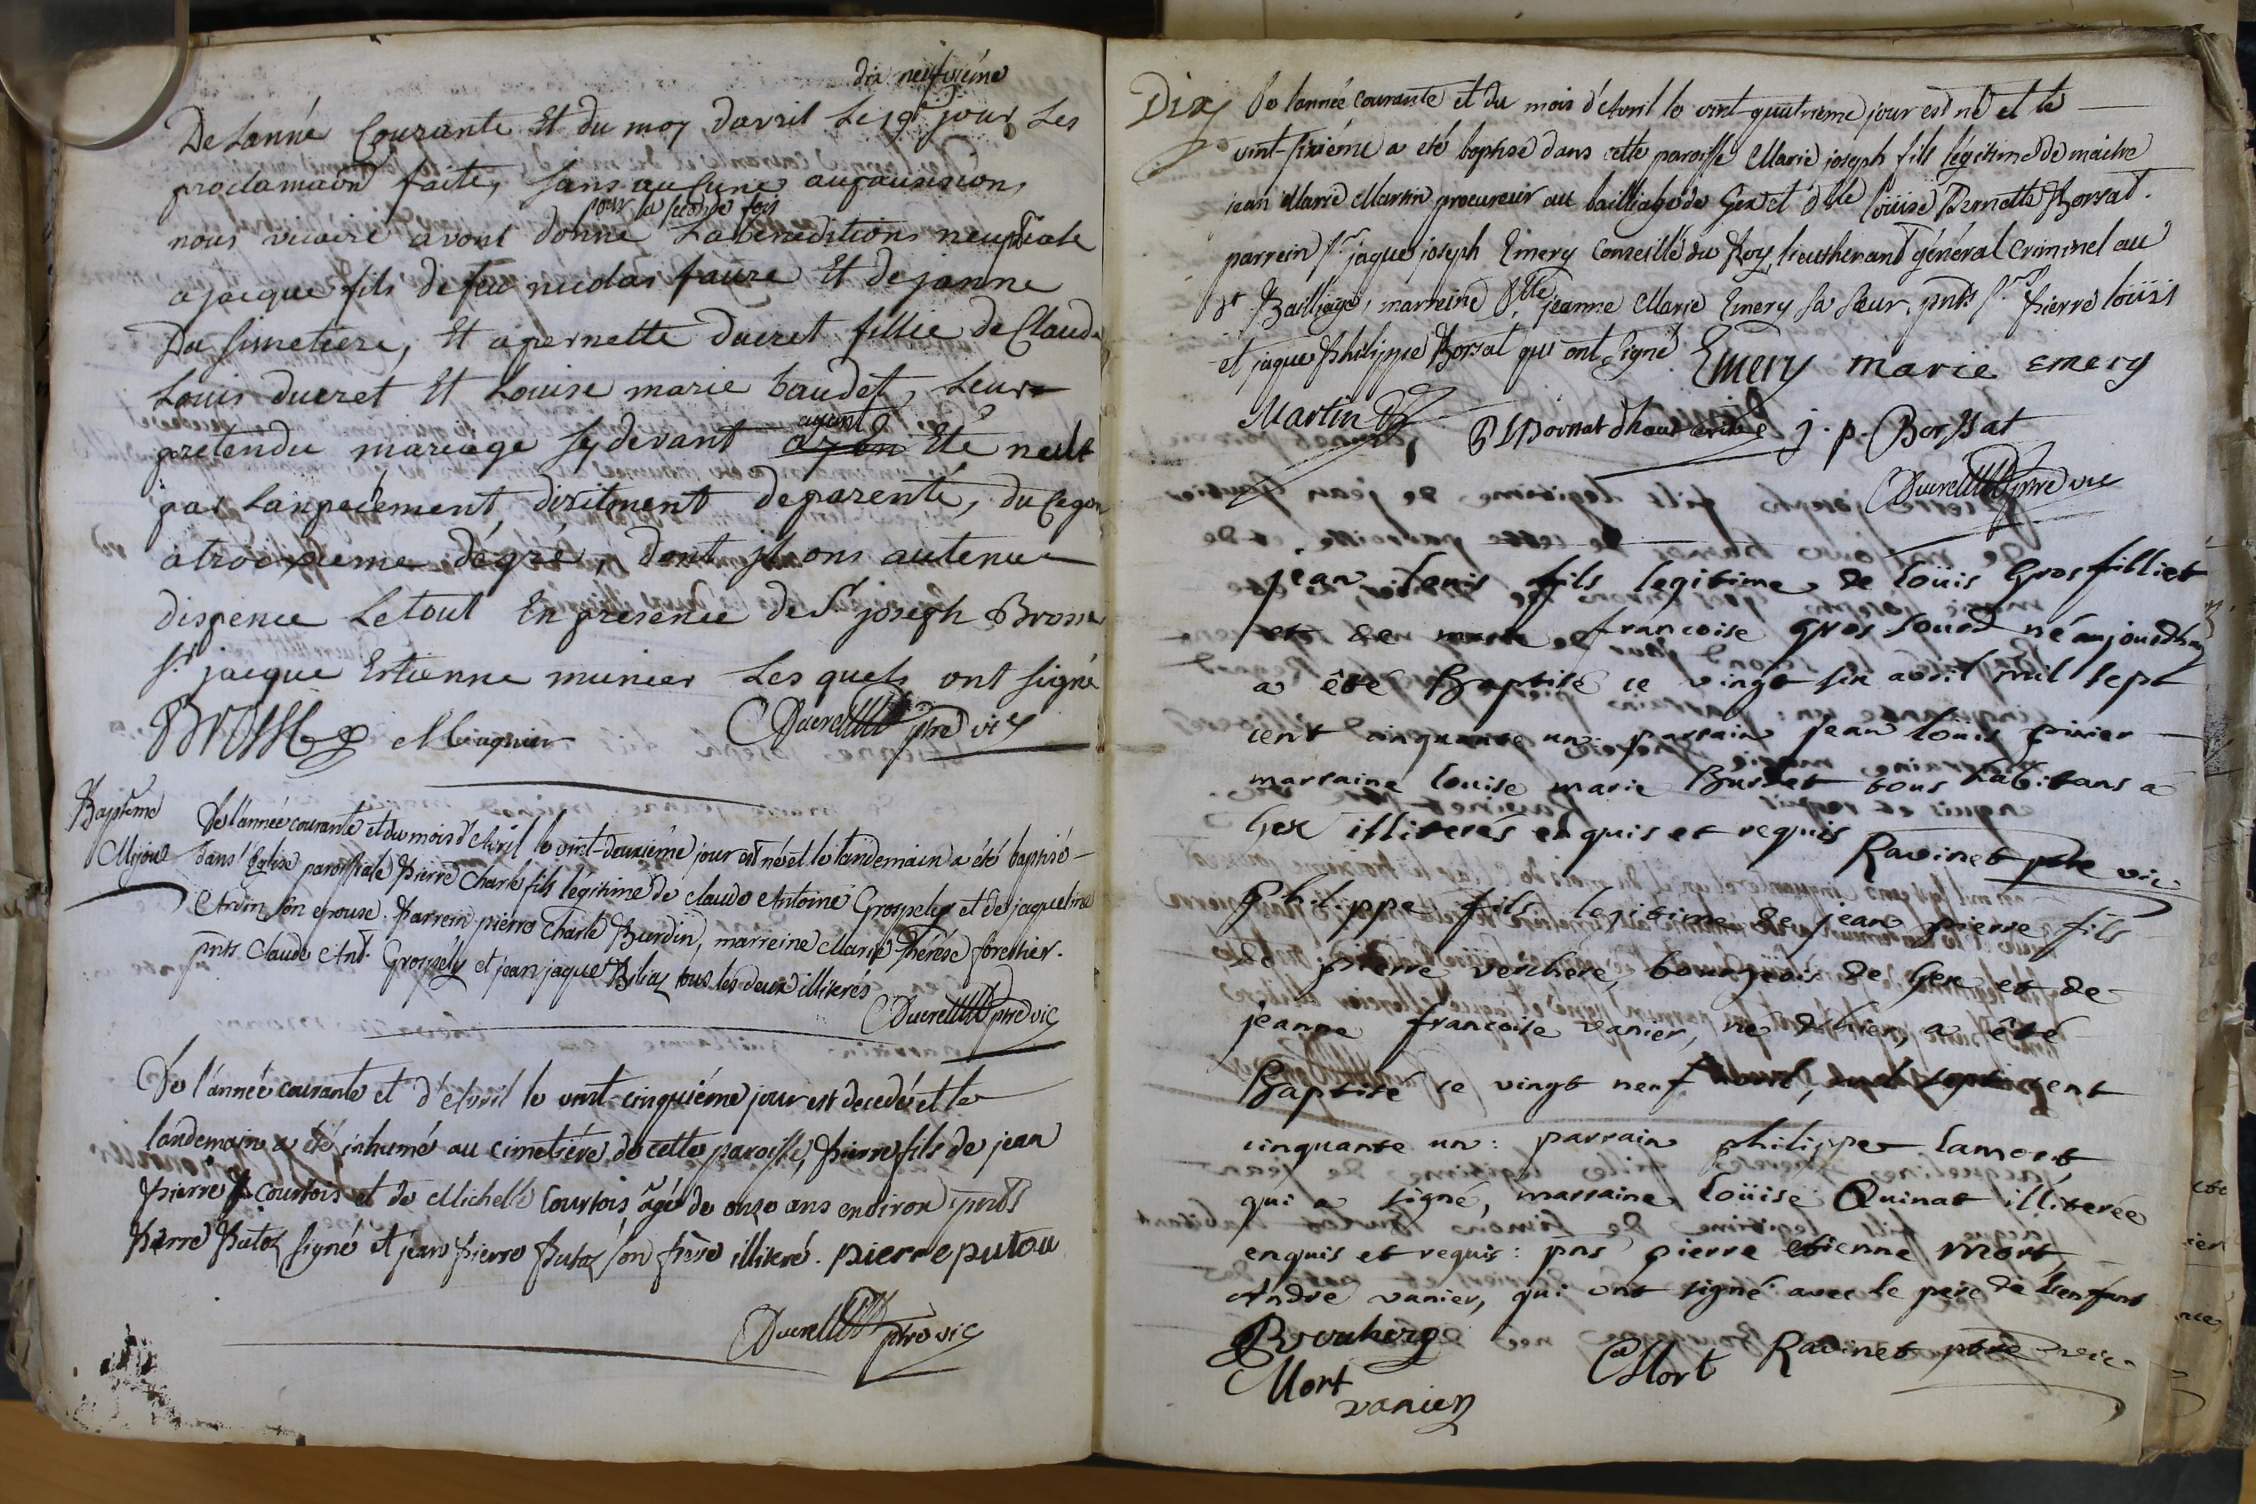 dix neufvieme
De Lanné Courante Et du moy davril Le 19e jour Les
proclamaon faite, sans aucune
pour la seconde fois
nous vicaire avont donné La beneditions neuptiale
a jacque fils de feu nicolas faure Et de janne
Du simetiere, Et a pernette ducret fillie de Claude
Louis ducret Et Louise marie baudet, Leur
ayant
pretendu mariage sy devant ayen Eté nulle
par Lanpeciement diritment deparenté, du segon
a troixieme dégré, dont jls ons autenue
dispence Le tout En presence de Sr joseph Brosse
Sr jacque Ertienne munier Les quels ont signé
BROSSE Mugnier Ducret ptre vic
Baptême
Mijoux
De l'année courante et du mois d'Avril le vint-deuxiéme jour est né et le landemain a été baptisé
dans l'Eglise paroissiale Pierre Charle fils légitime de claude Antoine Grospely et de jaqueline
son epouse. Parrein pierre Charle Burdin, marreine Marie Thérése forestier.
pnts Claude Ant. Grospely et jean jaque tous les deux illiterés
Ducret ptre vic
De l'année courante et d'Avril le vint-cinquiéme jour est decedé et le
landemain a été inhumé au cimetiére de cette paroisse, Pierre fils de jean
Pierre Courtois et de Michelle Courtois agé de onze ans environ pnts
Pierre Putoz signé et jean Pierre Putoz son frère illiteré. pierre putou
Ducret ptre vic
Dix De l'année courante et du mois d'Avril le vint-quatrieme jour est né et le
vint-sixiéme a eté baptisé dans cette paroisse Marie joseph fils légitime de maitre
jean Marie Martin procureur au bailliage de Gex et dlle Loüise Pernette Borsat.
parrein Sr jaque joseph Emery Conseillé du Roy, lieuthenant général criminel au
dt Bailliage, marreine Dlle jeanne Marie Emery sa sœur, pnts Sr Pierre loüis
et jaque Philippe Borsat qui ont signé. Emery marie emery
Martin j. p. Borssat
Ducret ptre vic
jean louis fils legitime de loüis Grosfilliet
et de marie francoise gros sourd né aujourdhuy
a été Baptisé ce vingt six avril mil sept
cent cinquante un: parrain jean loüis
marraine louise marie Burdet tous habitans a
Gex illiterés enquis et requis Ravinet ptre vic
philippe fils legitime de jean pierre fils
de pierre verchere, bourgeois de Gex et de
jeanne francoise vanier, né d'hier, a été
Baptisé ce vingt neuf avril, mil sept cent
cinquante un: parrain philippe lamort
qui a signé, marraine loüise Quinat illiterée
enquis et requis: pns pierre etienne Mort,
Andre vanier, qui ont signé avec le pere de l'enfant
Mort Ravinet ptre vic
Mort
vanier